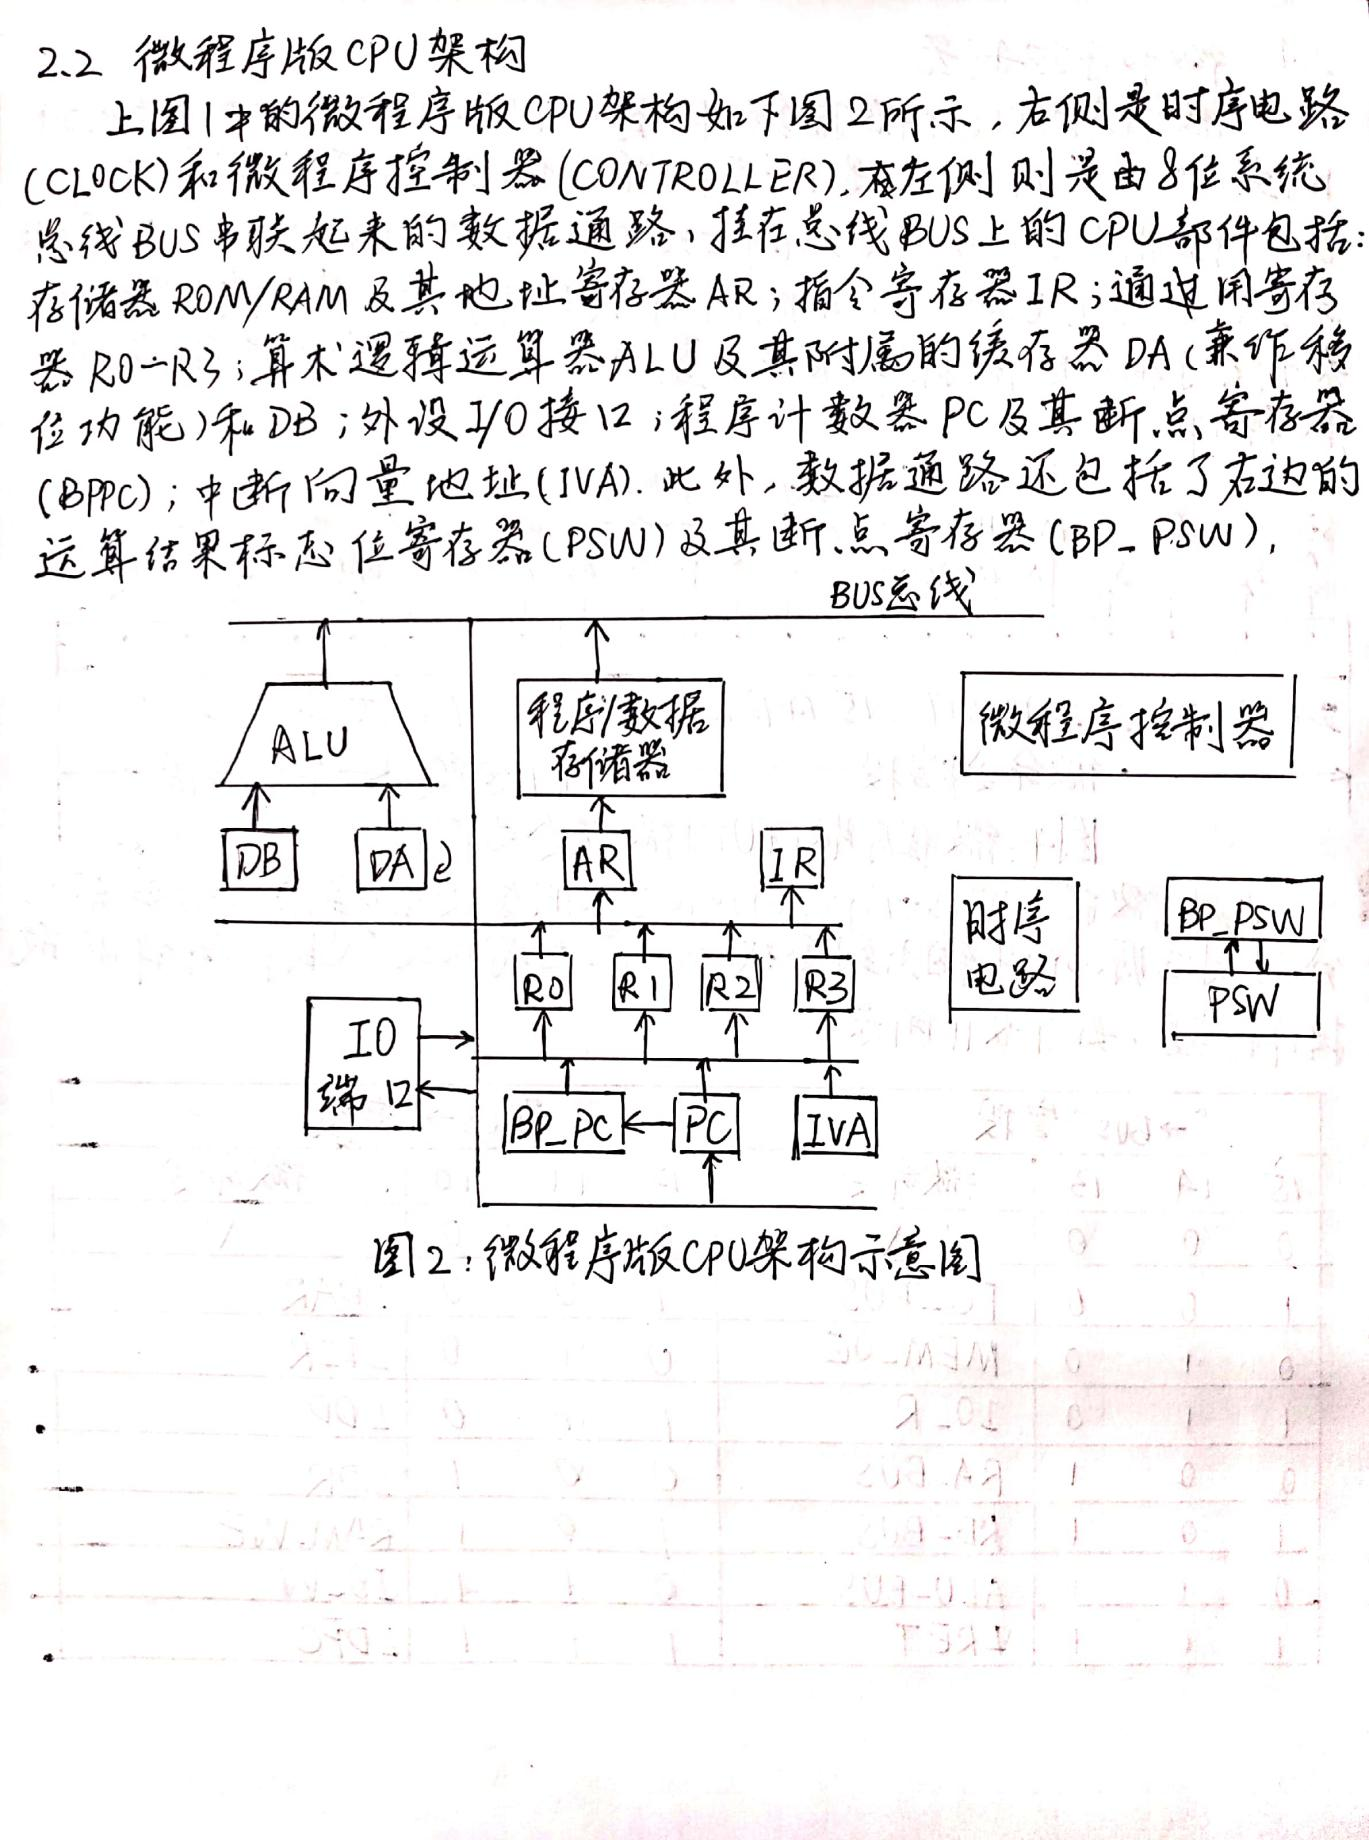 2.2 微程序版CPU架构
上图1中的微程序版CPU架构如下图2所示，右侧是时序电路
(CLOCK)和微程序控制器(CONTROLLER)，左侧则是由8位系统
总线BUS串联起来的数据通路，挂在总线BUS上的CPU部件包括：
存储器ROM/RAM及其地址寄存器AR；指令寄存器IR；通过用寄存
器R0-R3；算术逻辑运算器ALU及其附属的缓存器DA（兼作移
位功能）和DB；外设I/O接口；程序计数器PC及其断点寄存器
(BPPC)；中断向量地址(IVA). 此外，数据通路还包括了右边的
运算结果标志位寄存器(PSW)及其断点寄存器(BP_PSW)，
BUS总线
ALU
程序/数据
存储器
微程序控制器
DB
DA
AR
IR
时序
电路
BP_PSW
PSW
R0
R1
R2
R3
IO
端口
BP_PC
PC
IVA
图2：微程序版CPU架构示意图